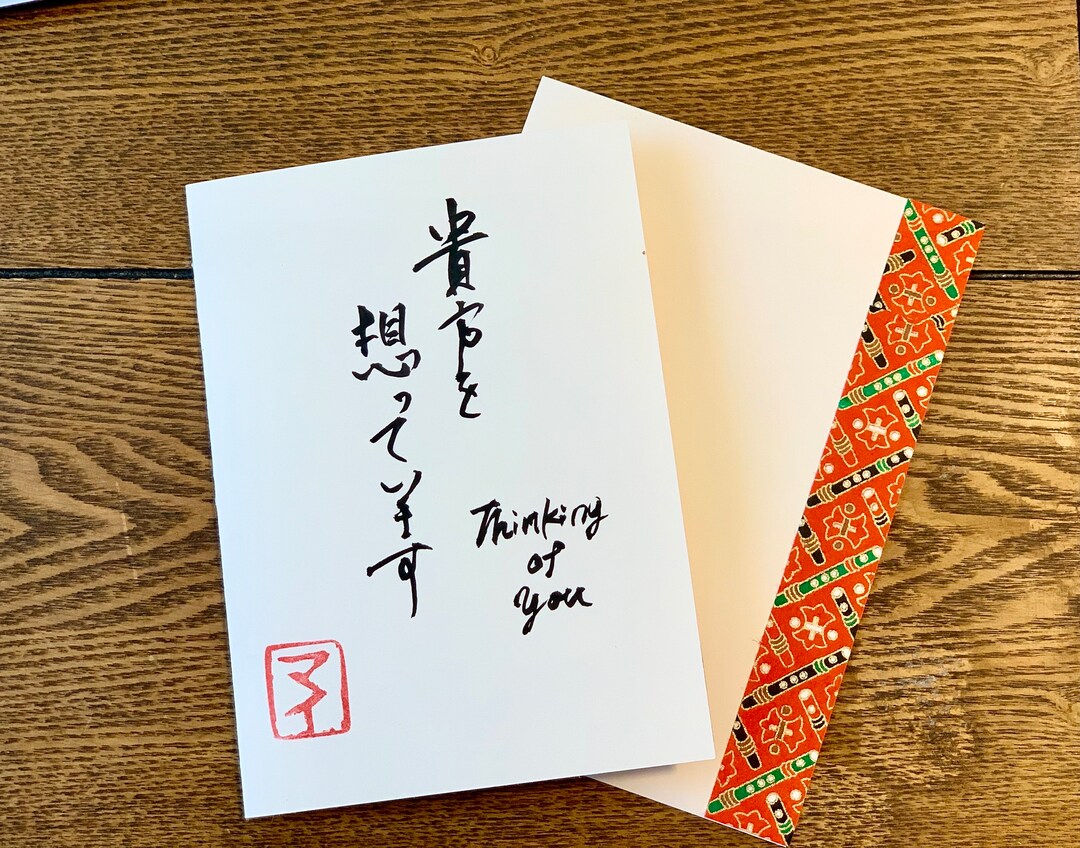 貴方を
想っています
Thinking
of
you